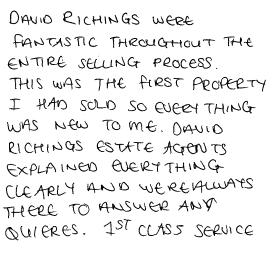 DAVID RICHINGS WERE
FANTASTIC THROUGHOUT THE
ENTIRE SELLING PROCESS.
THIS WAS THE FIRST PROPERTY
I HAD SOLD SO EVERYTHING
WAS NEW TO ME. DAVID
RICHINGS ESTATE AGENTS
EXPLAINED EVERYTHING
CLEARLY AND WERE ALWAYS
THERE TO ANSWER ANY
QUIERES. 1ST CLASS SERVICE